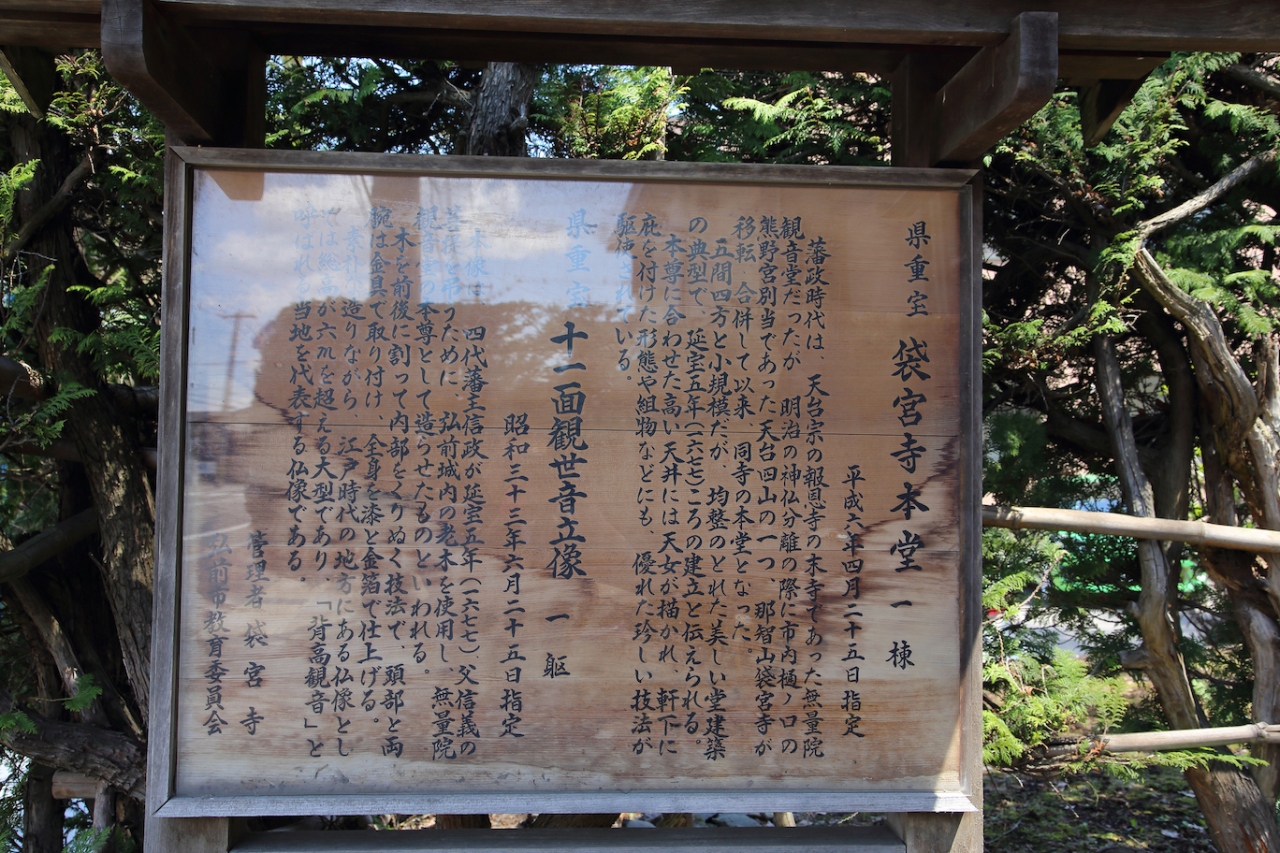 県重宝 袋宮寺本堂 一棟
平成六年四月二十五日指定
藩政時代は、天台宗の報恩寺の末寺であった無量院
観音堂だったが、明治の神仏分離の際に市内樋ノ口の
熊野宮別当であった天台四山の一つ、那智山袋宮寺が
移転、合併して以来、同寺の本堂となった。
五間四方と小規模だが、均整のとれた美しい堂建築
の典型で、延宝五年(一六七七)ころの建立と伝えられる。
本尊に合わせた高い天井には天女が描かれ、軒下に
庇を付けた形態や組物などにも、優れた珍しい技法が
駆使されている。
県重宝 十一面観世音立像 一躯
昭和三十三年六月二十五日指定
本像は、四代藩主信政が延宝五年(一六七七)父信義の
うために、弘前城内の老木を使用し、無量院
観音堂の本尊として造らせたものといわれる。
木を前後に割って内部をくりぬく技法で、頭部と両
腕は金具で取り付け、全身を漆と金箔で仕上げる。
造りながら、江戸時代の地方にある仏像とし
ては総高が六mを超える大型であり、「背高観音」と
呼ばれる当地を代表する仏像である。
管理者 袋宮寺
弘前市教育委員会